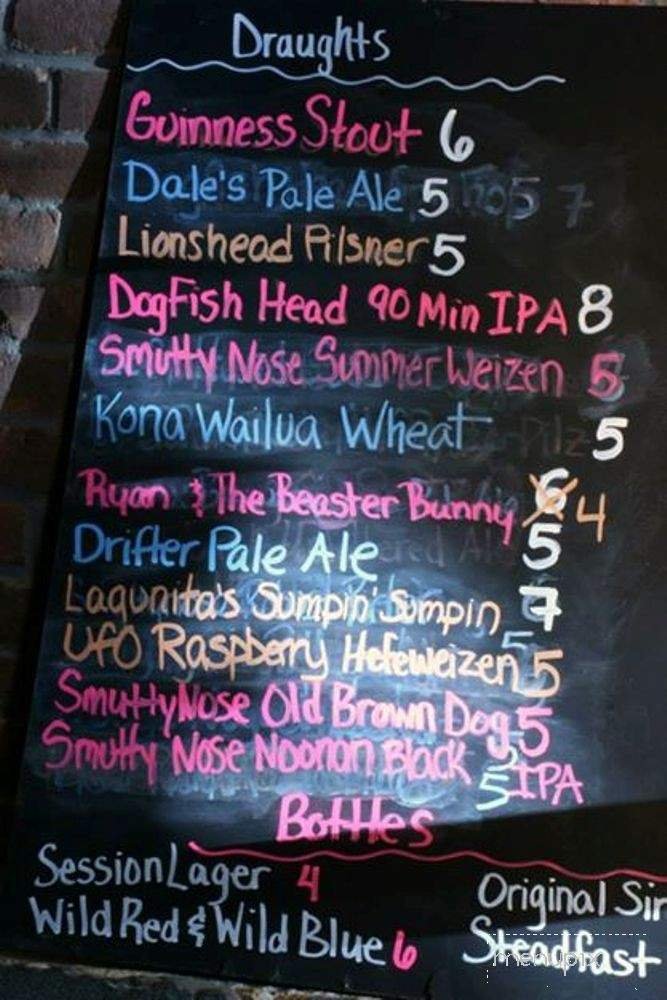 Draughts
Guinness Stout 6
Dale's Pale Ale 5
Lionshead Pilsner 5
DogFish Head 90 Min IPA 8
Smutty Nose Summer Weizen 5
Kona Wailua Wheat 5
Ryan & The Beaster Bunny 6 4
Drifter Pale Ale 5
Lagunita's Sumpin' Sumpin 7
UFO Raspberry Hefeweizen 5
Smutty Nose Old Brown Dog 5
Smutty Nose Noonan Black IPA 5
Bottles
Session Lager 4
Wild Red & Wild Blue 6
Original Sin
Steadfast
menupix